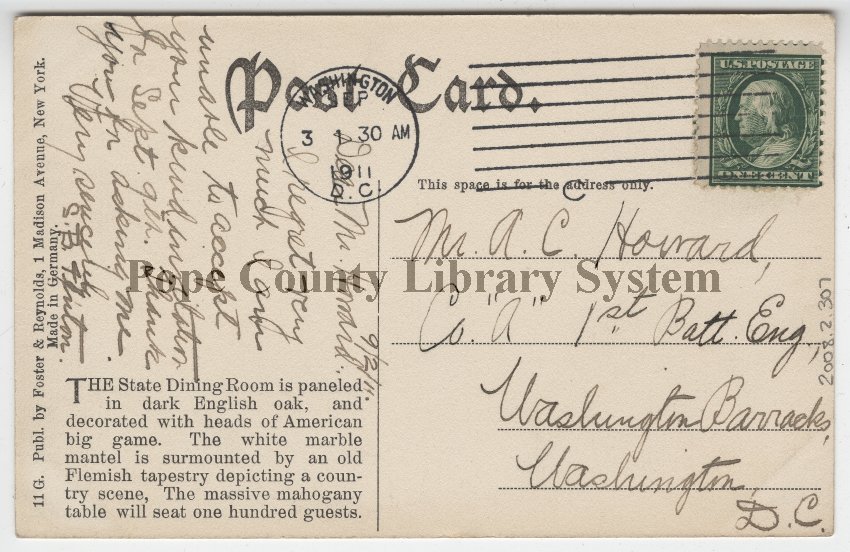 Post Card.
WASHINGTON
SEP
3
1 30 AM
1911
D.C.
U.S. POSTAGE
ONE CENT
This space is for the address only.
9/2/11.
Dear Mr. Howard.
I regret very
much I am
unable to accept
your kind invitation
for Sept. 9th. Thank
you for asking me.
Very sincerely
Mr. A. C. Howard,
Co. "A" 1st Batt. Eng,
Washington Barracks,
Washington,
D.C.
THE State Dining Room is paneled
in dark English oak, and
decorated with heads of American
big game. The white marble
mantel is surmounted by an old
Flemish tapestry depicting a coun-
try scene, The massive mahogany
table will seat one hundred guests.
11 G. Publ. by Foster & Reynolds, 1 Madison Avenue, New York.
Made in Germany.
2008.2.307
Pope County Library System